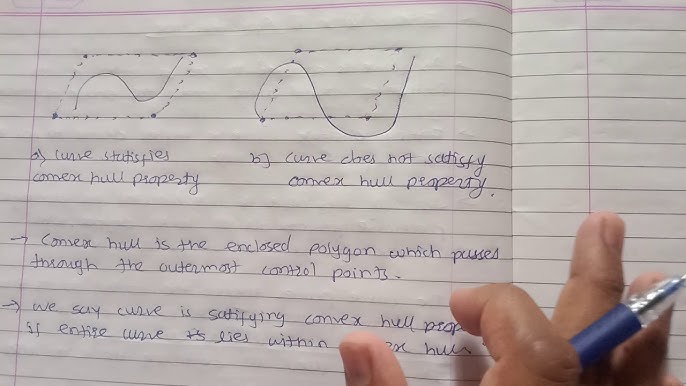 a) curve statisfies
convex hull property
b) curve does not satisfy
convex hull property.
→ convex hull is the enclosed polygon which passes
through the outermost control points.
→ we say curve is satisfying convex hull
if entire curve is lies within hull.